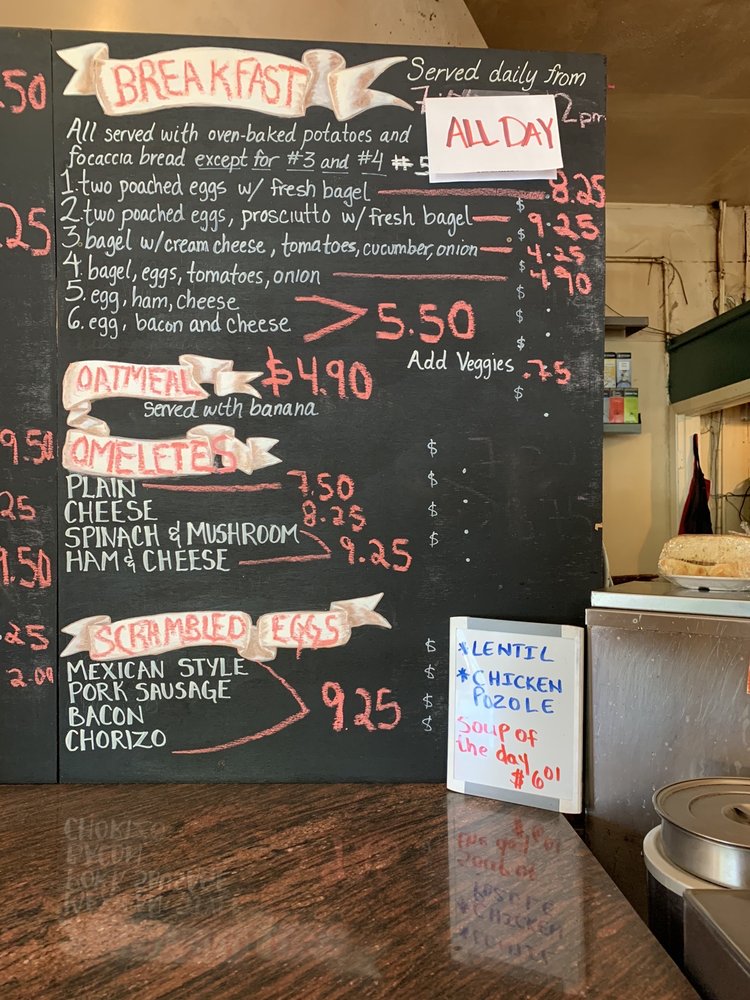 BREAKFAST
Served daily from
ALL DAY
2pm
All served with oven-baked potatoes and
focaccia bread except for #3 and #4 #5
1. two poached eggs w/ fresh bagel 8.25
2. two poached eggs, prosciutto w/ fresh bagel $ 9.25
3. bagel w/cream cheese, tomatoes, cucumber, onion $ 4.25
4. bagel, eggs, tomatoes, onion $ 4.90
5. egg, ham, cheese
6. egg, bacon and cheese > 5.50
Add Veggies .75
OATMEAL $4.90
served with banana
OMELETES
PLAIN 7.50
CHEESE 8.25
SPINACH & MUSHROOM
HAM & CHEESE 9.25
SCRAMBLED EGGS
MEXICAN STYLE
PORK SAUSAGE
BACON
CHORIZO
9.25
*LENTIL
*CHICKEN
POZOLE
Soup of
the day
$6.01
.50
.25
9.50
.25
9.50
.25
2.00